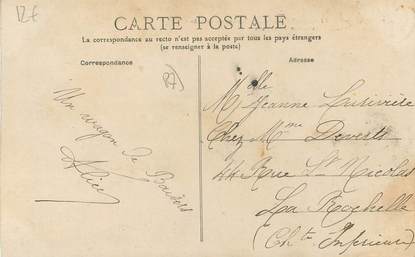 12€
CARTE POSTALE
La correspondance au recto n'est pas acceptée par tous les pays étrangers
(se renseigner à la poste)
Correspondance
Adresse
27
Un wagon de Baisers
Alice
Melle Jeanne
Chez Mme Devests
44 Rue St Nicolas
La Rochelle
(Chte Inférieure)